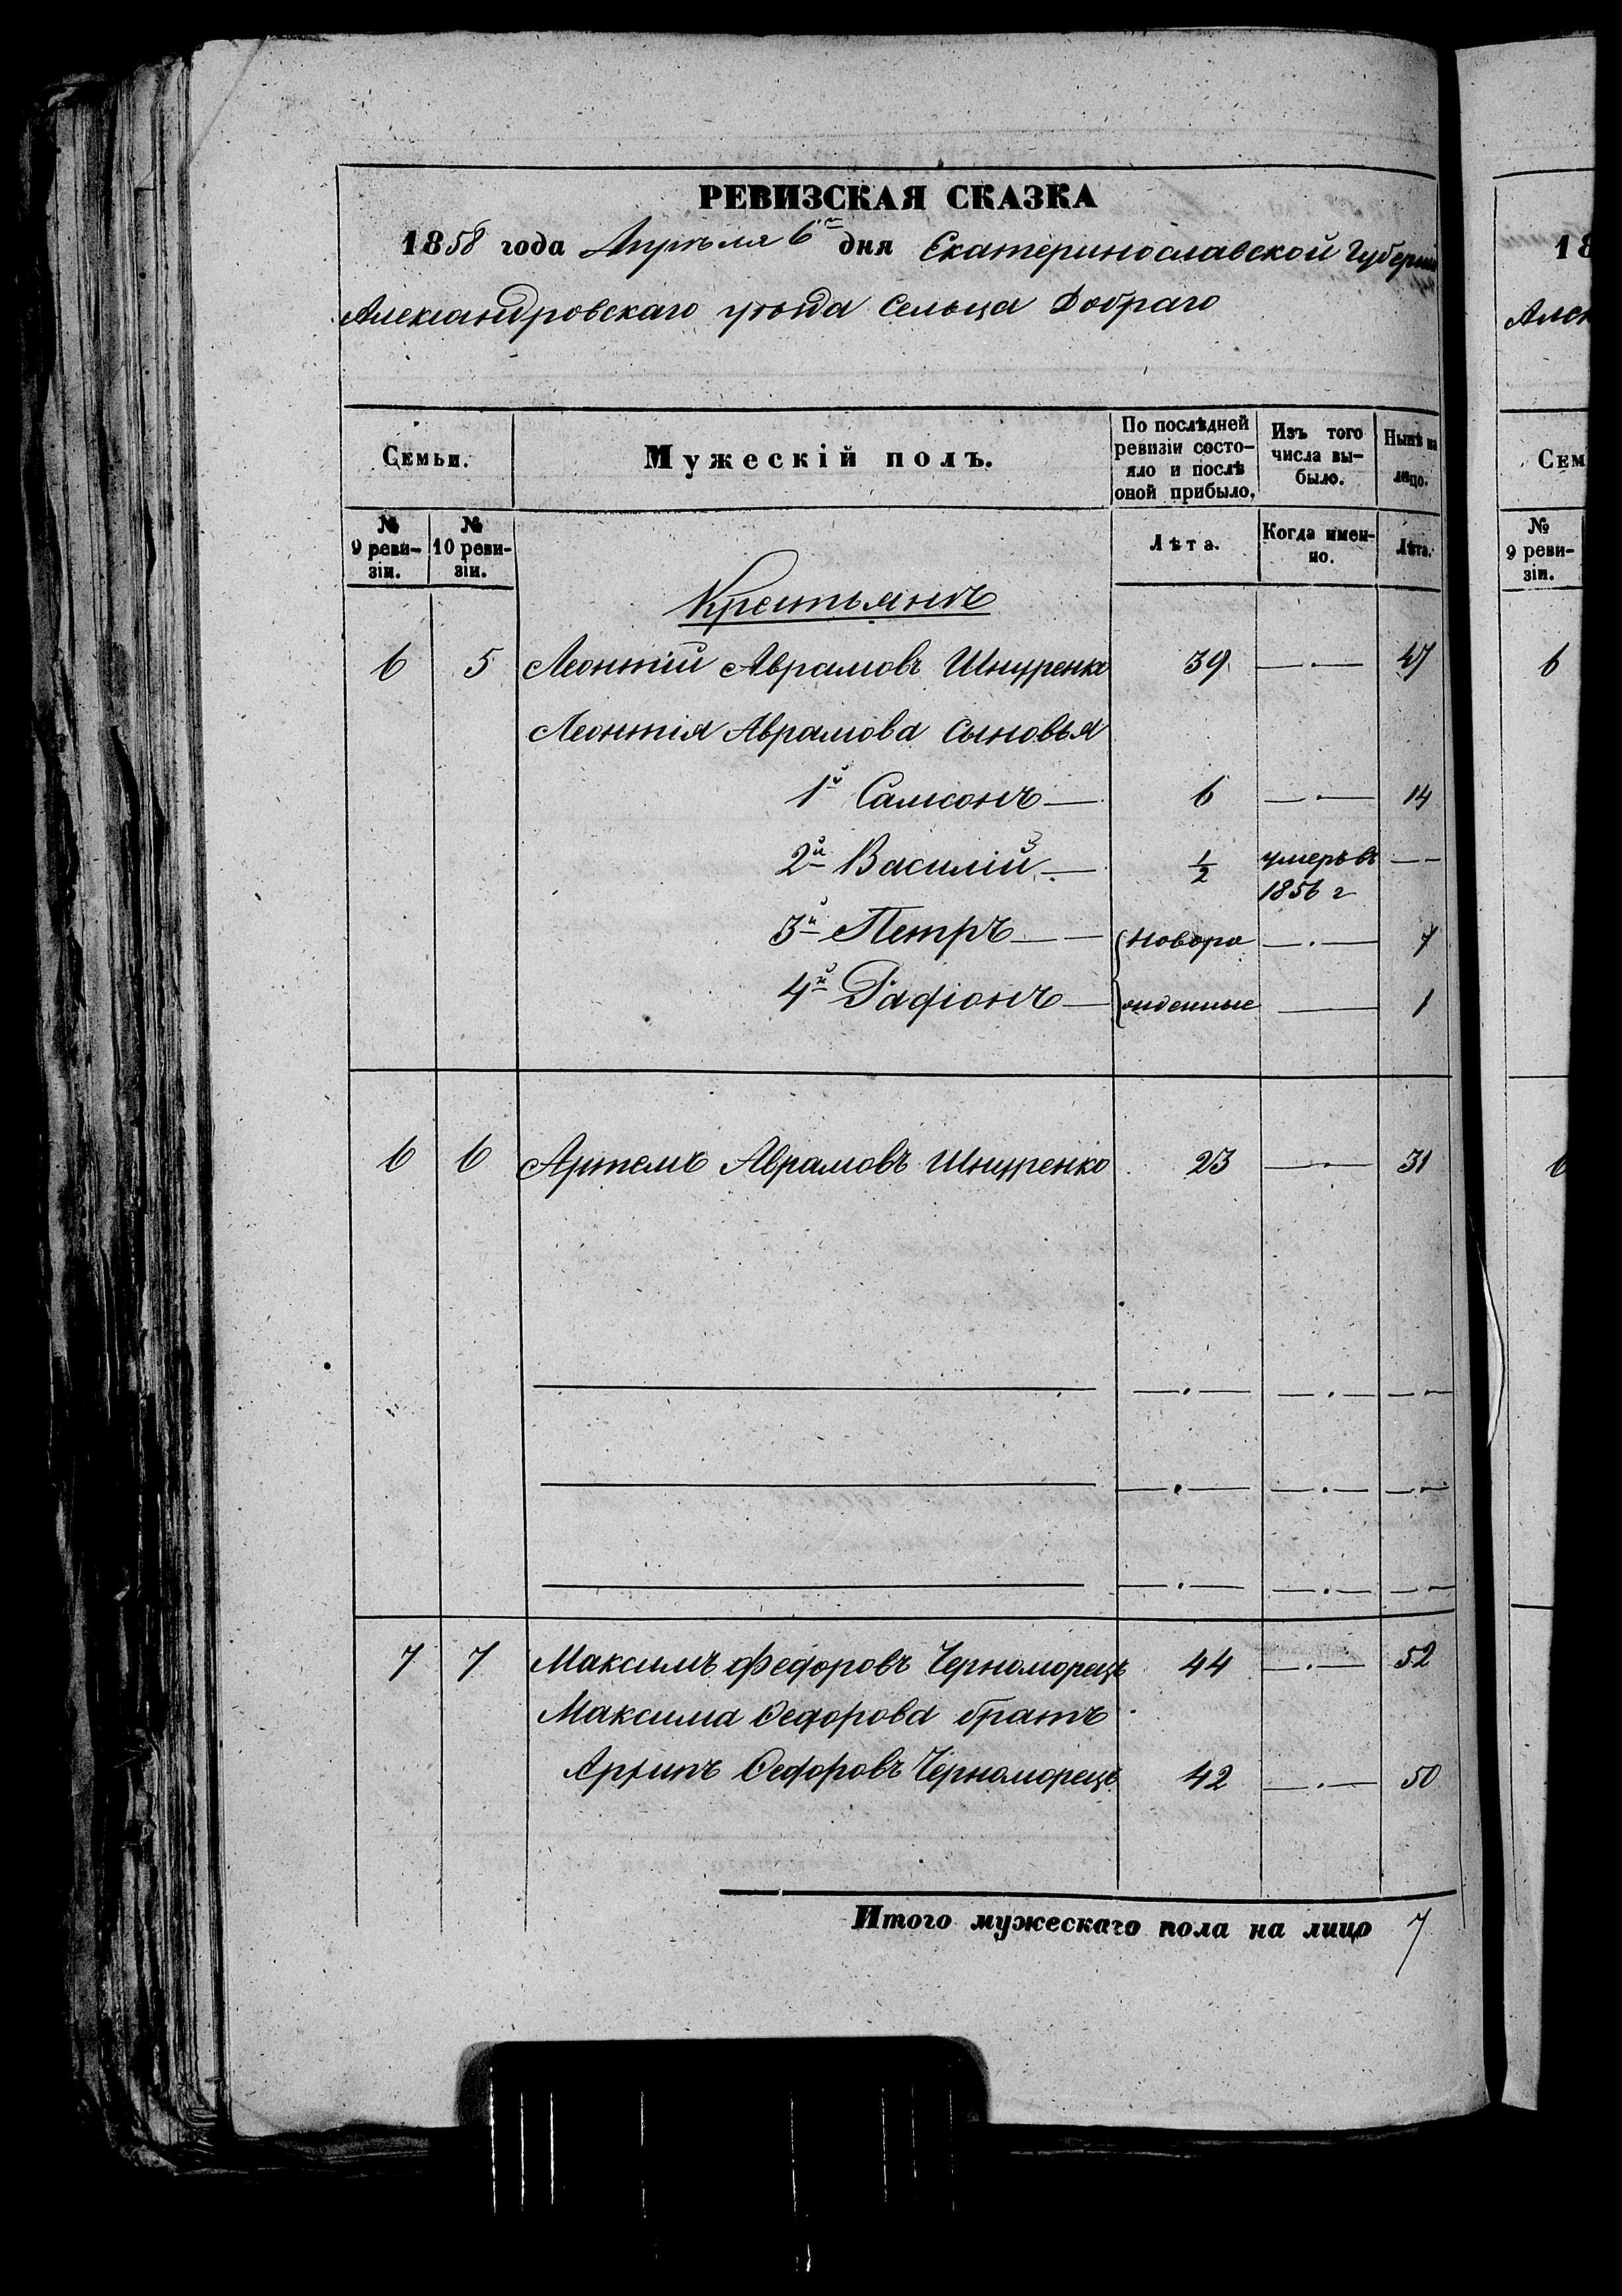 РЕВИЗСКАЯ СКАЗКА
1858 года Апрѣля 6го дня Екатеринославской Губерніи
Александровскаго уѣзда Сельца Добраго
Семьи.
Мужескій полъ.
По послѣдней ревизіи состо-
яло и послѣ
оной прибыло.
Изъ того
числа вы-
было.
Нынѣ на
лицо.
№
9 реви-
зіи.
№
10 реви-
зіи.
Лѣта.
Когда имен-
но.
Лѣта.
Крестьянъ
6 5 Леонтій Аврамовъ Шнуренко 39 —·— 47
Леонтія Аврамова Сыновья
1й Самсонъ — 6 —·— 14
2й Василій — ½ умеръ въ 1856 г — —
3й Петръ — — новоро —·— 7
4й Радіонъ — жденные — 1
6 6 Артемъ Аврамовъ Шнуренко 23 —·— 31
7 7 Максимъ Федоровъ Черноморецъ 44 —·— 52
Максима Ѳедорова братъ
Архипъ Ѳедоровъ Черноморецъ 42 —·— 50
Итого мужескаго пола на лицо 7
18
Алек
Сем
№
9 реви-
зіи.
6
6